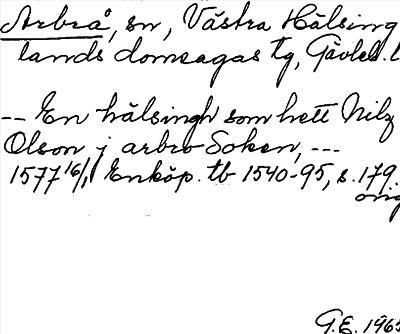 Arbrå, sn, Västra Hälsing
lands domsagas tg, Gävleb. l
-- En hälsingh som hett Nilz
Olson j arbro Soken, ---
1577 16/1 Enköp. tb 1540-95, s. 179.
orig
G.E. 1965